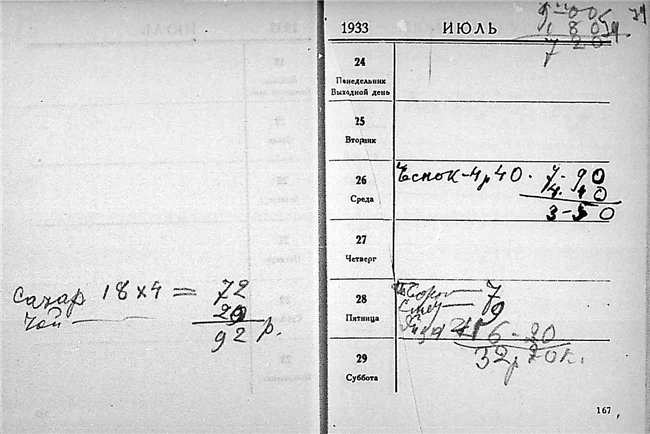 Сахар 18 x 4 = 72
Чай — 20
92 р.
1933 ИЮЛЬ
9-00
1 80
7 20
24
Понедельник
Выходной день
25
Вторник
26
Среда
Чеснок - 4р 40. 7-90
4.40
3-50
27
Четверг
28
Пятница
7
9
6-20
32р 20к.
29
Суббота
167